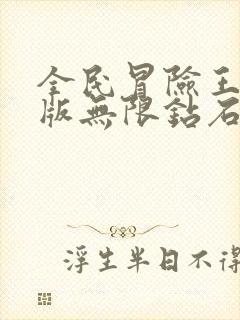 全民冒險王
版無限鈷石
浮生半日不得